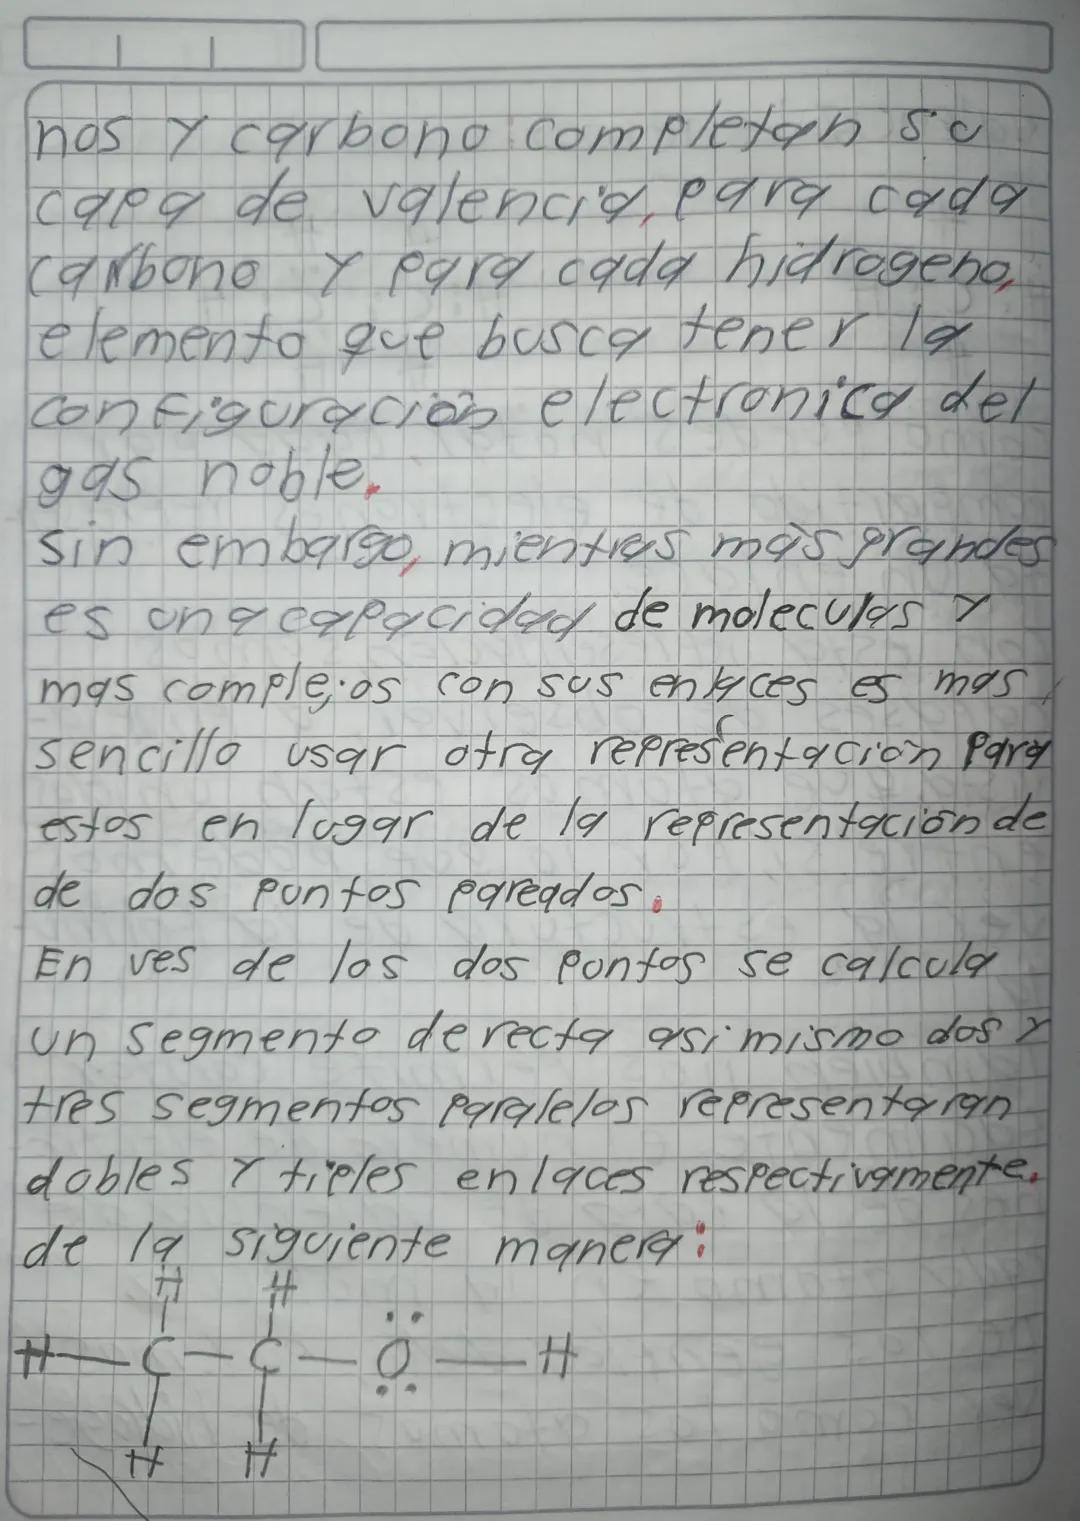 nos y carbono completan su
capa de valencia, para cada
carbono y para cada hidrogeno,
elemento que busca tener la
configuración electronica del
gas noble.
sin embargo, mientras más grandes
es una capacidad de moleculas y
mas complejos con sus enlaces es mas
sencillo usar otra representación para
estos en lugar de la representación de
de dos puntos pareados.
En ves de los dos puntos se calcula
un segmento de recta asi mismo dos y
tres segmentos paralelos representaran
dobles y tiples enlaces respectivamente.
de la siguiente manera:
H H
H — C — C — O — H
H H